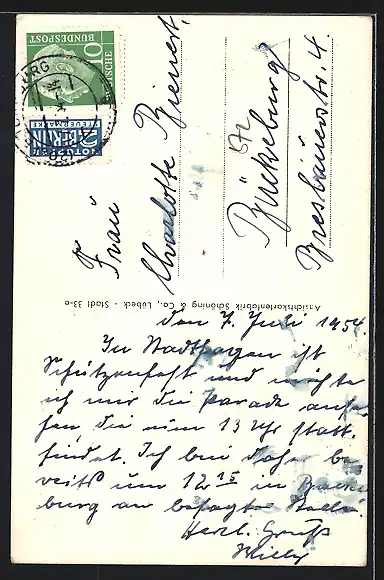 DEUTSCHE
BUNDESPOST
10
NOTOPFER
2 BERLIN
STEUERMARKE
Frau
Charlotte Bienert
Bückeburg
Breslauerstr. 4.
Ansichtskartenfabrik Schöning & Co., Lübeck - Stadt 33-e
den 7. Juli 1954.
In Stadthagen ist
Schützenfest und möchte
ich mir die Parade anse-
hen, die um 13 Uhr statt-
findet. Ich bin daher be-
reits um 12 15 in Bücke-
burg an besagter Stelle.
Herzl. Gruß
Willy